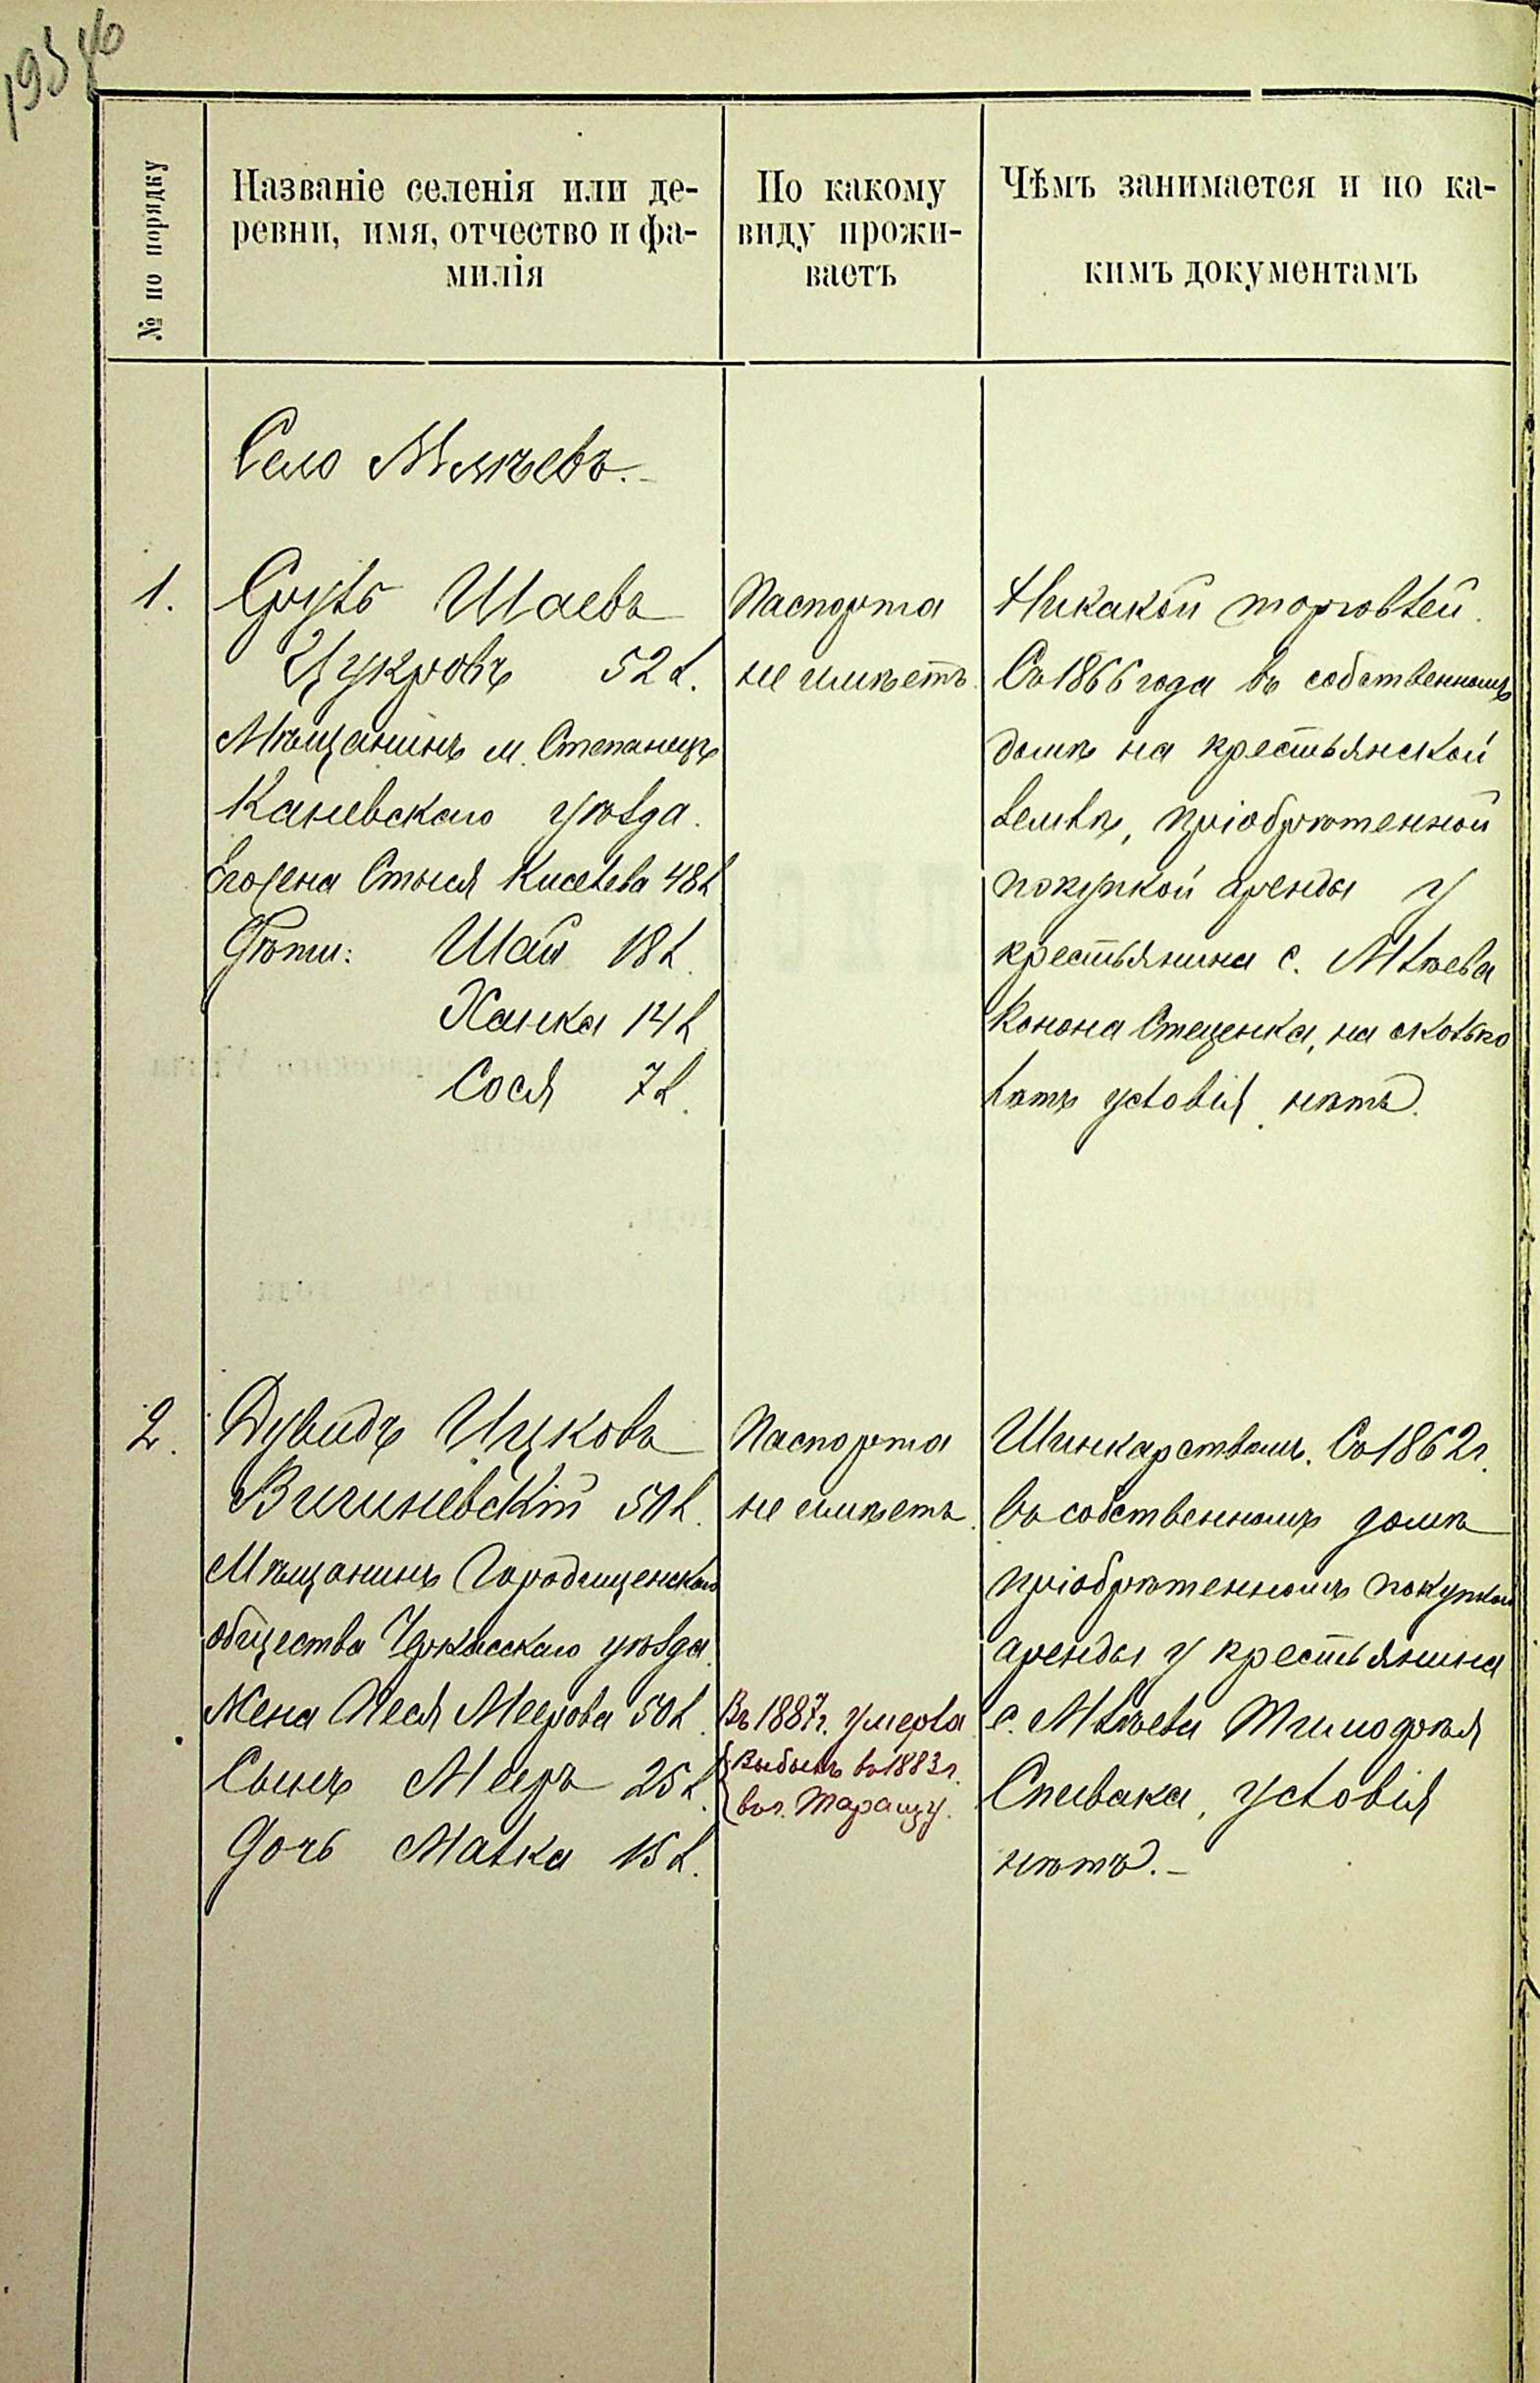 № по порядку
Названіе селенія или де-
ревни, имя, отчество и фа-
милія
По какому
виду прожи-
ваетъ
Чѣмъ занимается и по ка-
кимъ документамъ
Село Млѣевъ.-
1.
Сруль Шаевъ
Цукровъ 52 л.
Мѣщанинъ м. Степанецъ
Каневскаго уѣзда.
Его жена Стыся Киселева 48 л
Дѣти: Шая 18 л.
Ханка 14 л
Сося 7 л.
Паспорта
не имѣетъ.
Никакой торговлей.
Съ 1866 года въ собственномъ
домѣ на крестьянской
землѣ, пріобрѣтенной
покупкой аренды у
крестьянина с. Млѣева
Конона Стеценка, на сколько
лѣтъ условія нѣтъ.
2.
Дувидъ Ицковъ
Вигиневскій 50 л.
Мѣщанинъ Городищенскаго
общества Черкасскаго уѣзда.
Жена Песя Меерова 50 л.
Сынъ Мееръ 25 л.
Дочь Малка 15 л.
Паспорта
не имѣетъ.
Въ 1887 г. умерла
Выбылъ въ 1883 г.
въ г. Таращу.
Шинкарствомъ. Съ 1862 г.
въ собственномъ домѣ
пріобрѣтенномъ покупкой
аренды у крестьянина
с. Млѣева Тимофѣя
Спивака, условія
нѣтъ.-